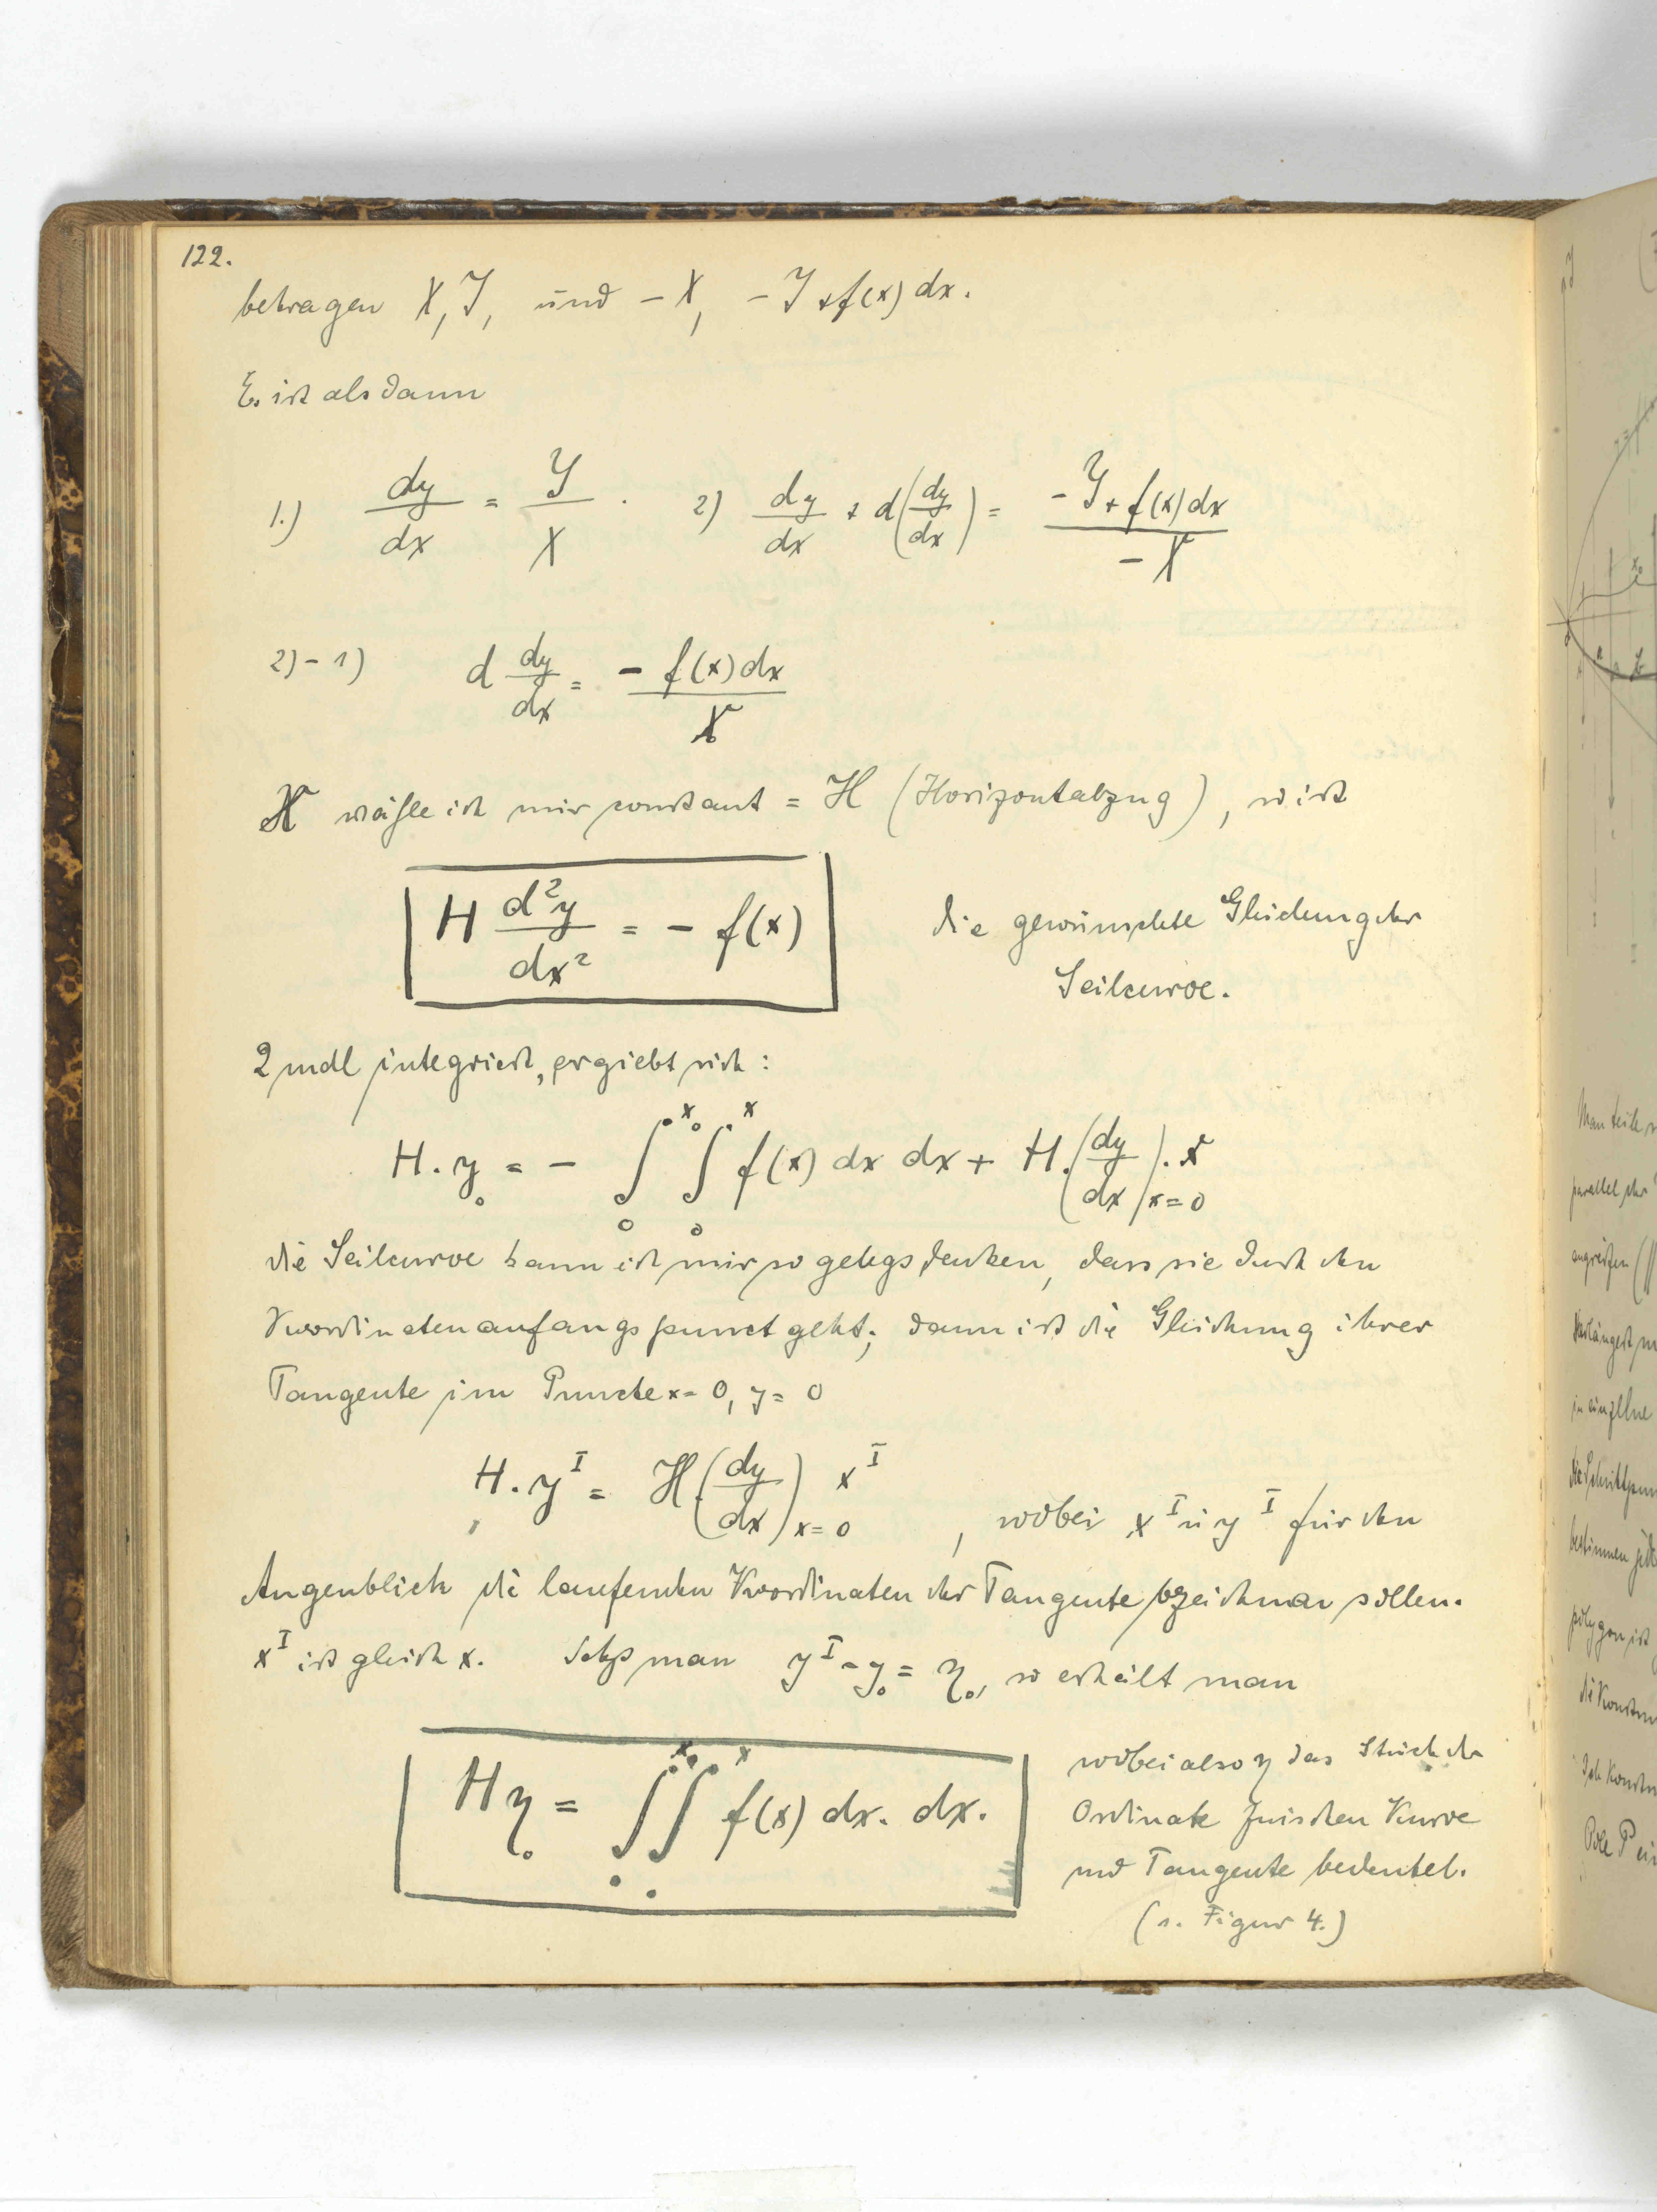 122.
betragen X, Y, und – X, – Y + f(x) dx.
Es ist alsdann
1.) dy/dx = Y/X . 2) dy/dx + d(dy/dx) = (– Y + f(x) dx)/(– X)
2) – 1) d dy/dx = – f(x) dx / X
X wähle ich mir constant = H (Horizontalzug), so ist
H d²y/dx² = – f(x) die gewünschte Gleichung der
Seilcurve.
2 mal integriert, ergiebt sich:
H . y₀ = – ∫₀^x₀ ∫₀^x f(x) dx dx + H . (dy/dx)x=0 . x
die Seilcurve kann ich mir so gelegt denken, dass sie durch den
Koordinatenanfangspunct geht; dann ist die Gleichung ihrer
Tangente im Puncte x = 0, y = 0
H . y^I = H . (dy/dx)x=0 x^I , wobei x^I u y^I für den
Augenblick die laufenden Koordinaten der Tangente bezeichnen sollen.
x^I ist gleich x. Setzt man y^I – y₀ = η₀, so erhält man
Hη₀ = ∫₀^x₀ ∫₀^x f(x) dx . dx . wobei also η das Stück der
Ordinate zwischen Kurve
und Tangente bedeutet.
(s. Figur 4.)
Man teile
parallel der
angreifen
verlängert
in einzelne
die Schnittpun
bestimmen
polygon ist
die Konstru
Ich konstru
Pole P ei